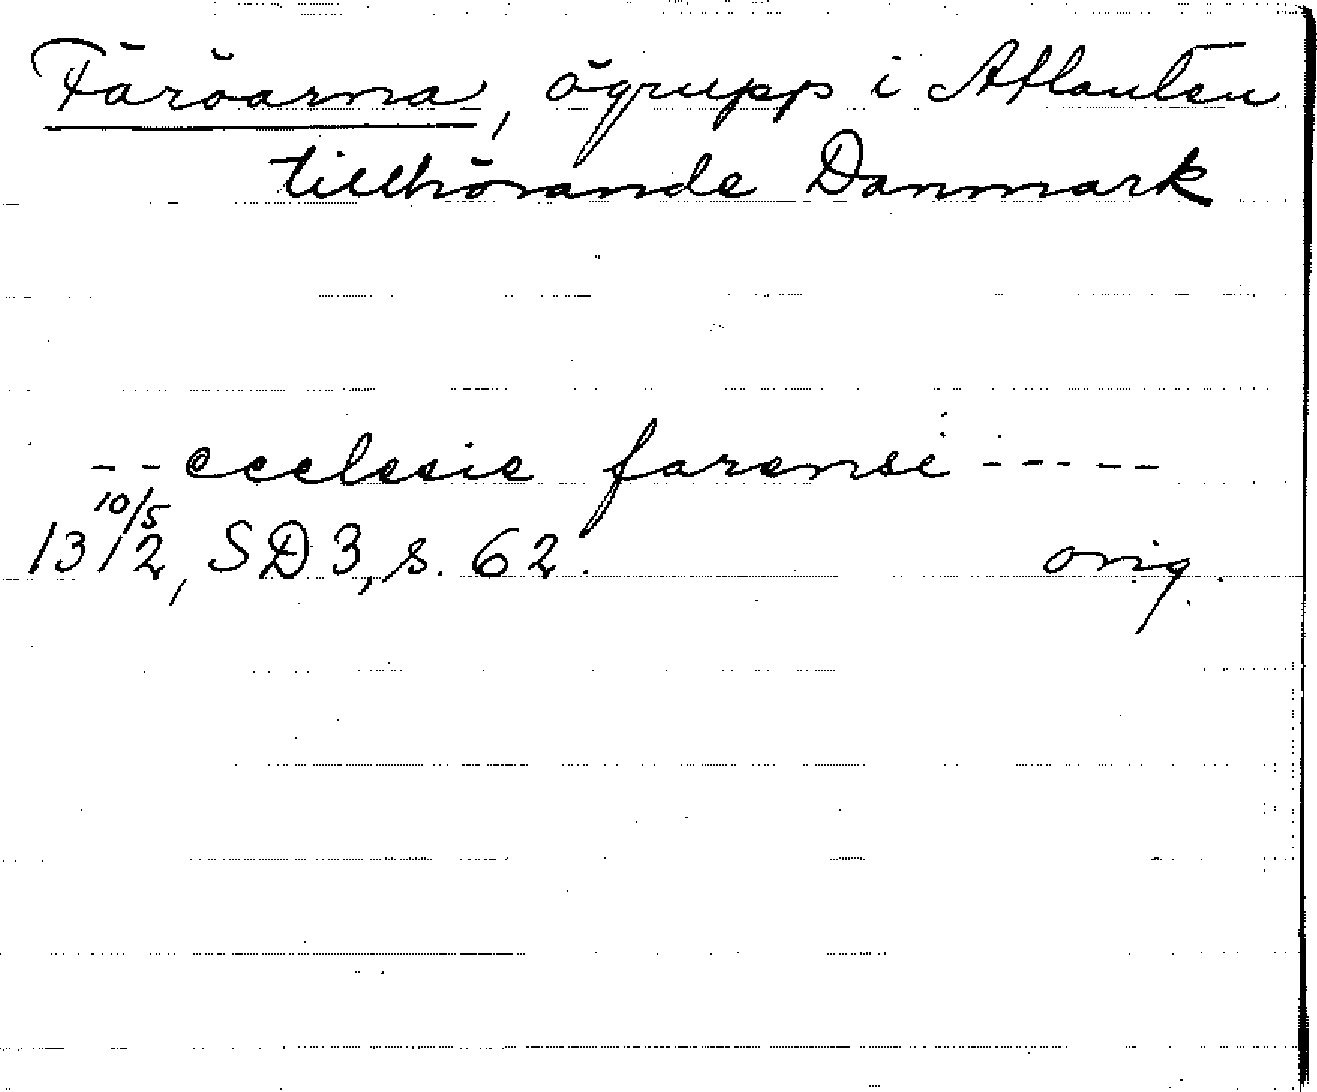 Färöarna, ögrupp i Atlanten
tillhörande Danmark
-- ecclesie farensi -----
13 10/5 12, SD 3, s. 62. orig.